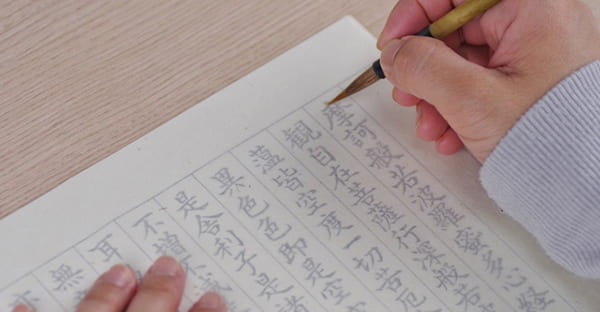 摩訶般若波羅蜜多心経
観自在菩薩行深般若
蘊皆空度一切苦厄
異色色即是空
是舎利子是諸
不増不減
耳
無